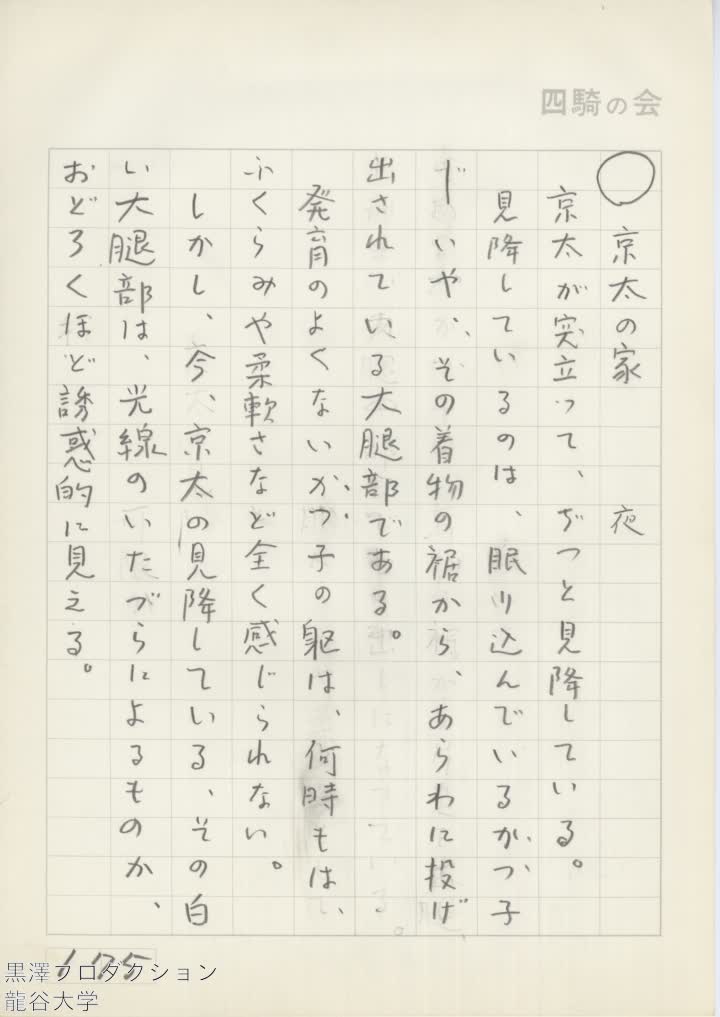 四騎の会
○京太の家　　　夜
京太が突立って、ぢっと見降している。
見降しているのは、眠り込んでいるかつ子
じいや、その着物の裾から、あらわに投げ
出されている大腿部である。
発育のよくないかつ子の躯は、何時もは、
ふくらみや柔軟さなど全く感じられない。
しかし、今、京太の見降している、その白
い大腿部は、光線のいたづらによるものか、
おどろくほど誘惑的に見える。
175
黒澤プロダクション
龍谷大学